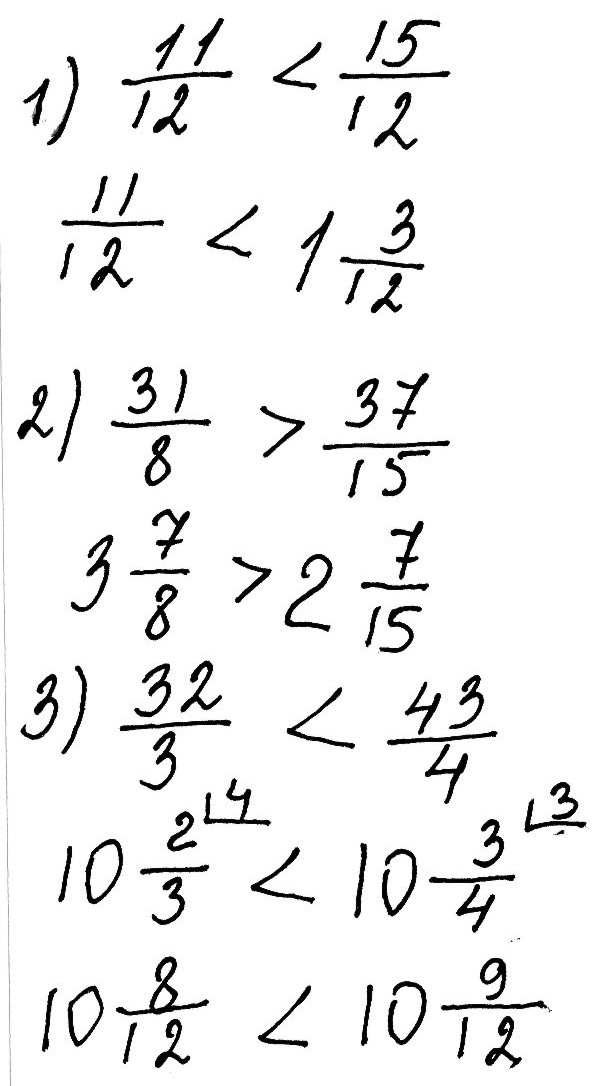 1) 11/12 < 15/12
11/12 < 1 3/12
2) 31/8 > 37/15
3 7/8 > 2 7/15
3) 32/3 < 43/4
10 2/3 ⌊4 < 10 3/4 ⌊3
10 8/12 < 10 9/12